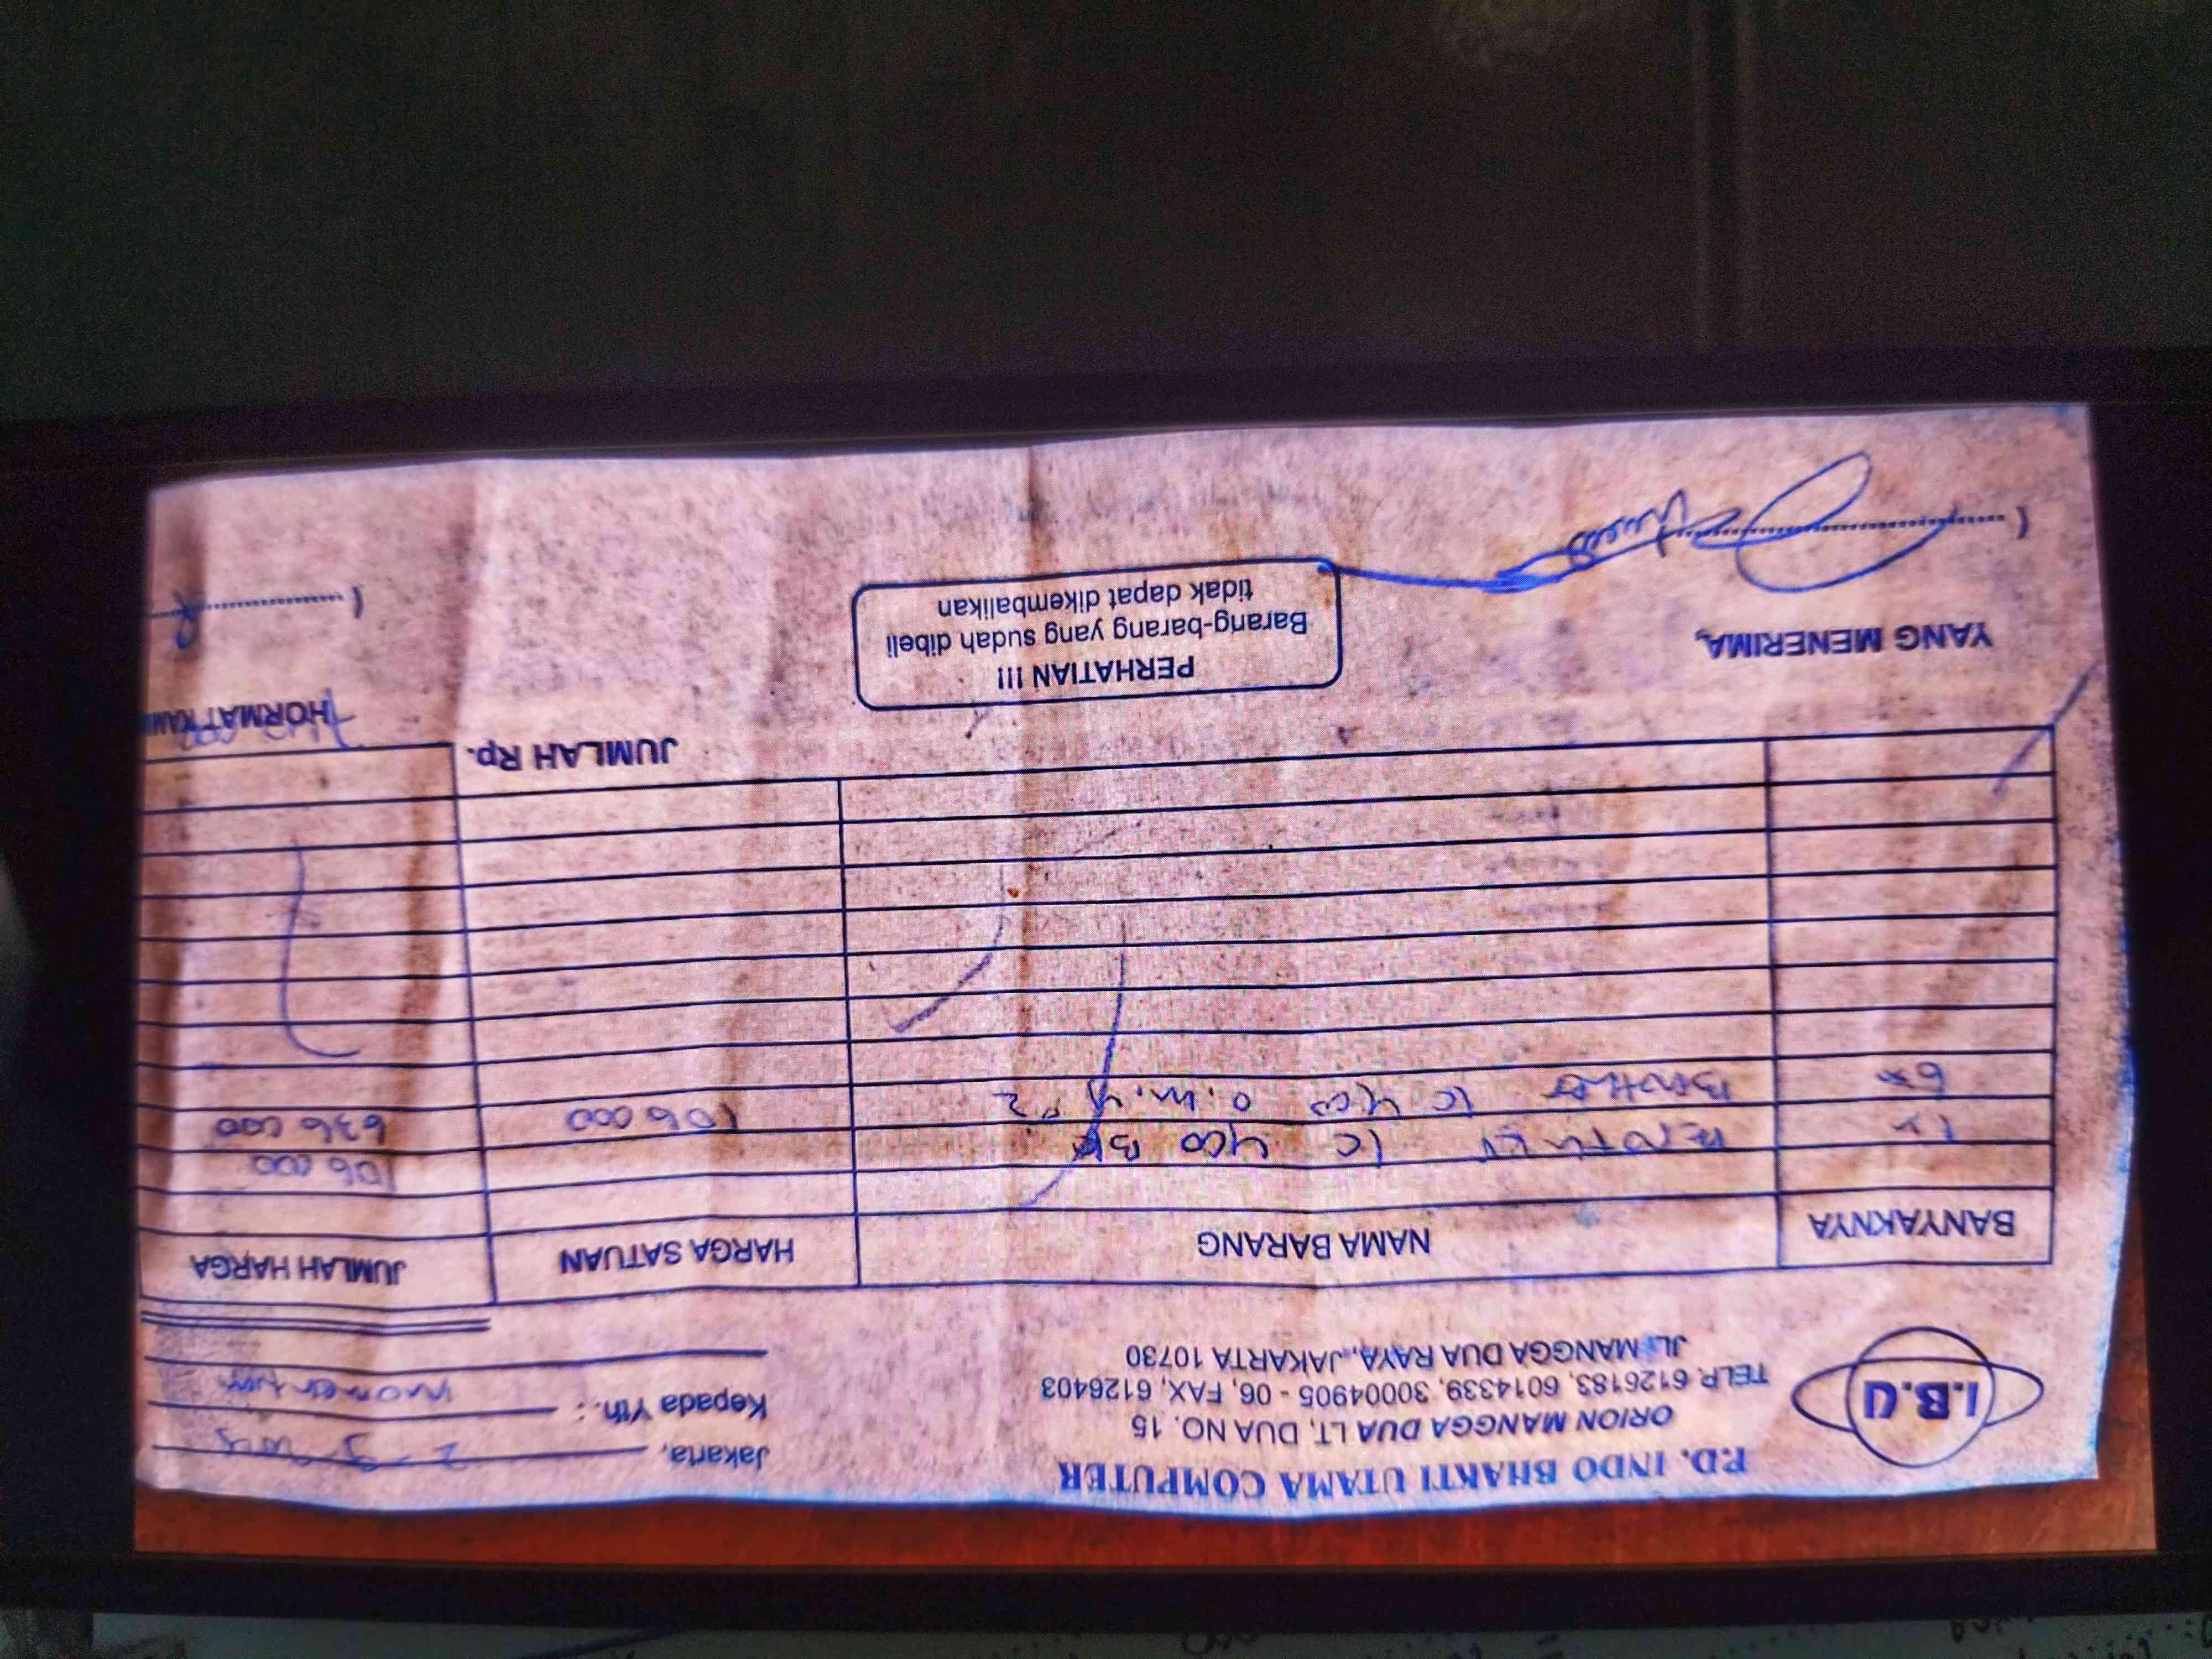 I.B.U
P.D. INDO BHAKTI UTAMA COMPUTER
ORION MANGGA DUA LT, DUA NO. 15
TELP. 6126183, 6014339, 30004905 - 06, FAX, 6126403
JL. MANGGA DUA RAYA, JAKARTA 10730
Jakarta,
Kepada Yth. :
BANYAKNYA NAMA BARANG HARGA SATUAN JUMLAH HARGA
1x 1C 400 BK 106 000
6x 1C 400 106 000 636 000
JUMLAH Rp.
YANG MENERIMA,
PERHATIAN !!!
Barang-barang yang sudah dibeli
tidak dapat dikembalikan
HORMAT KAMI